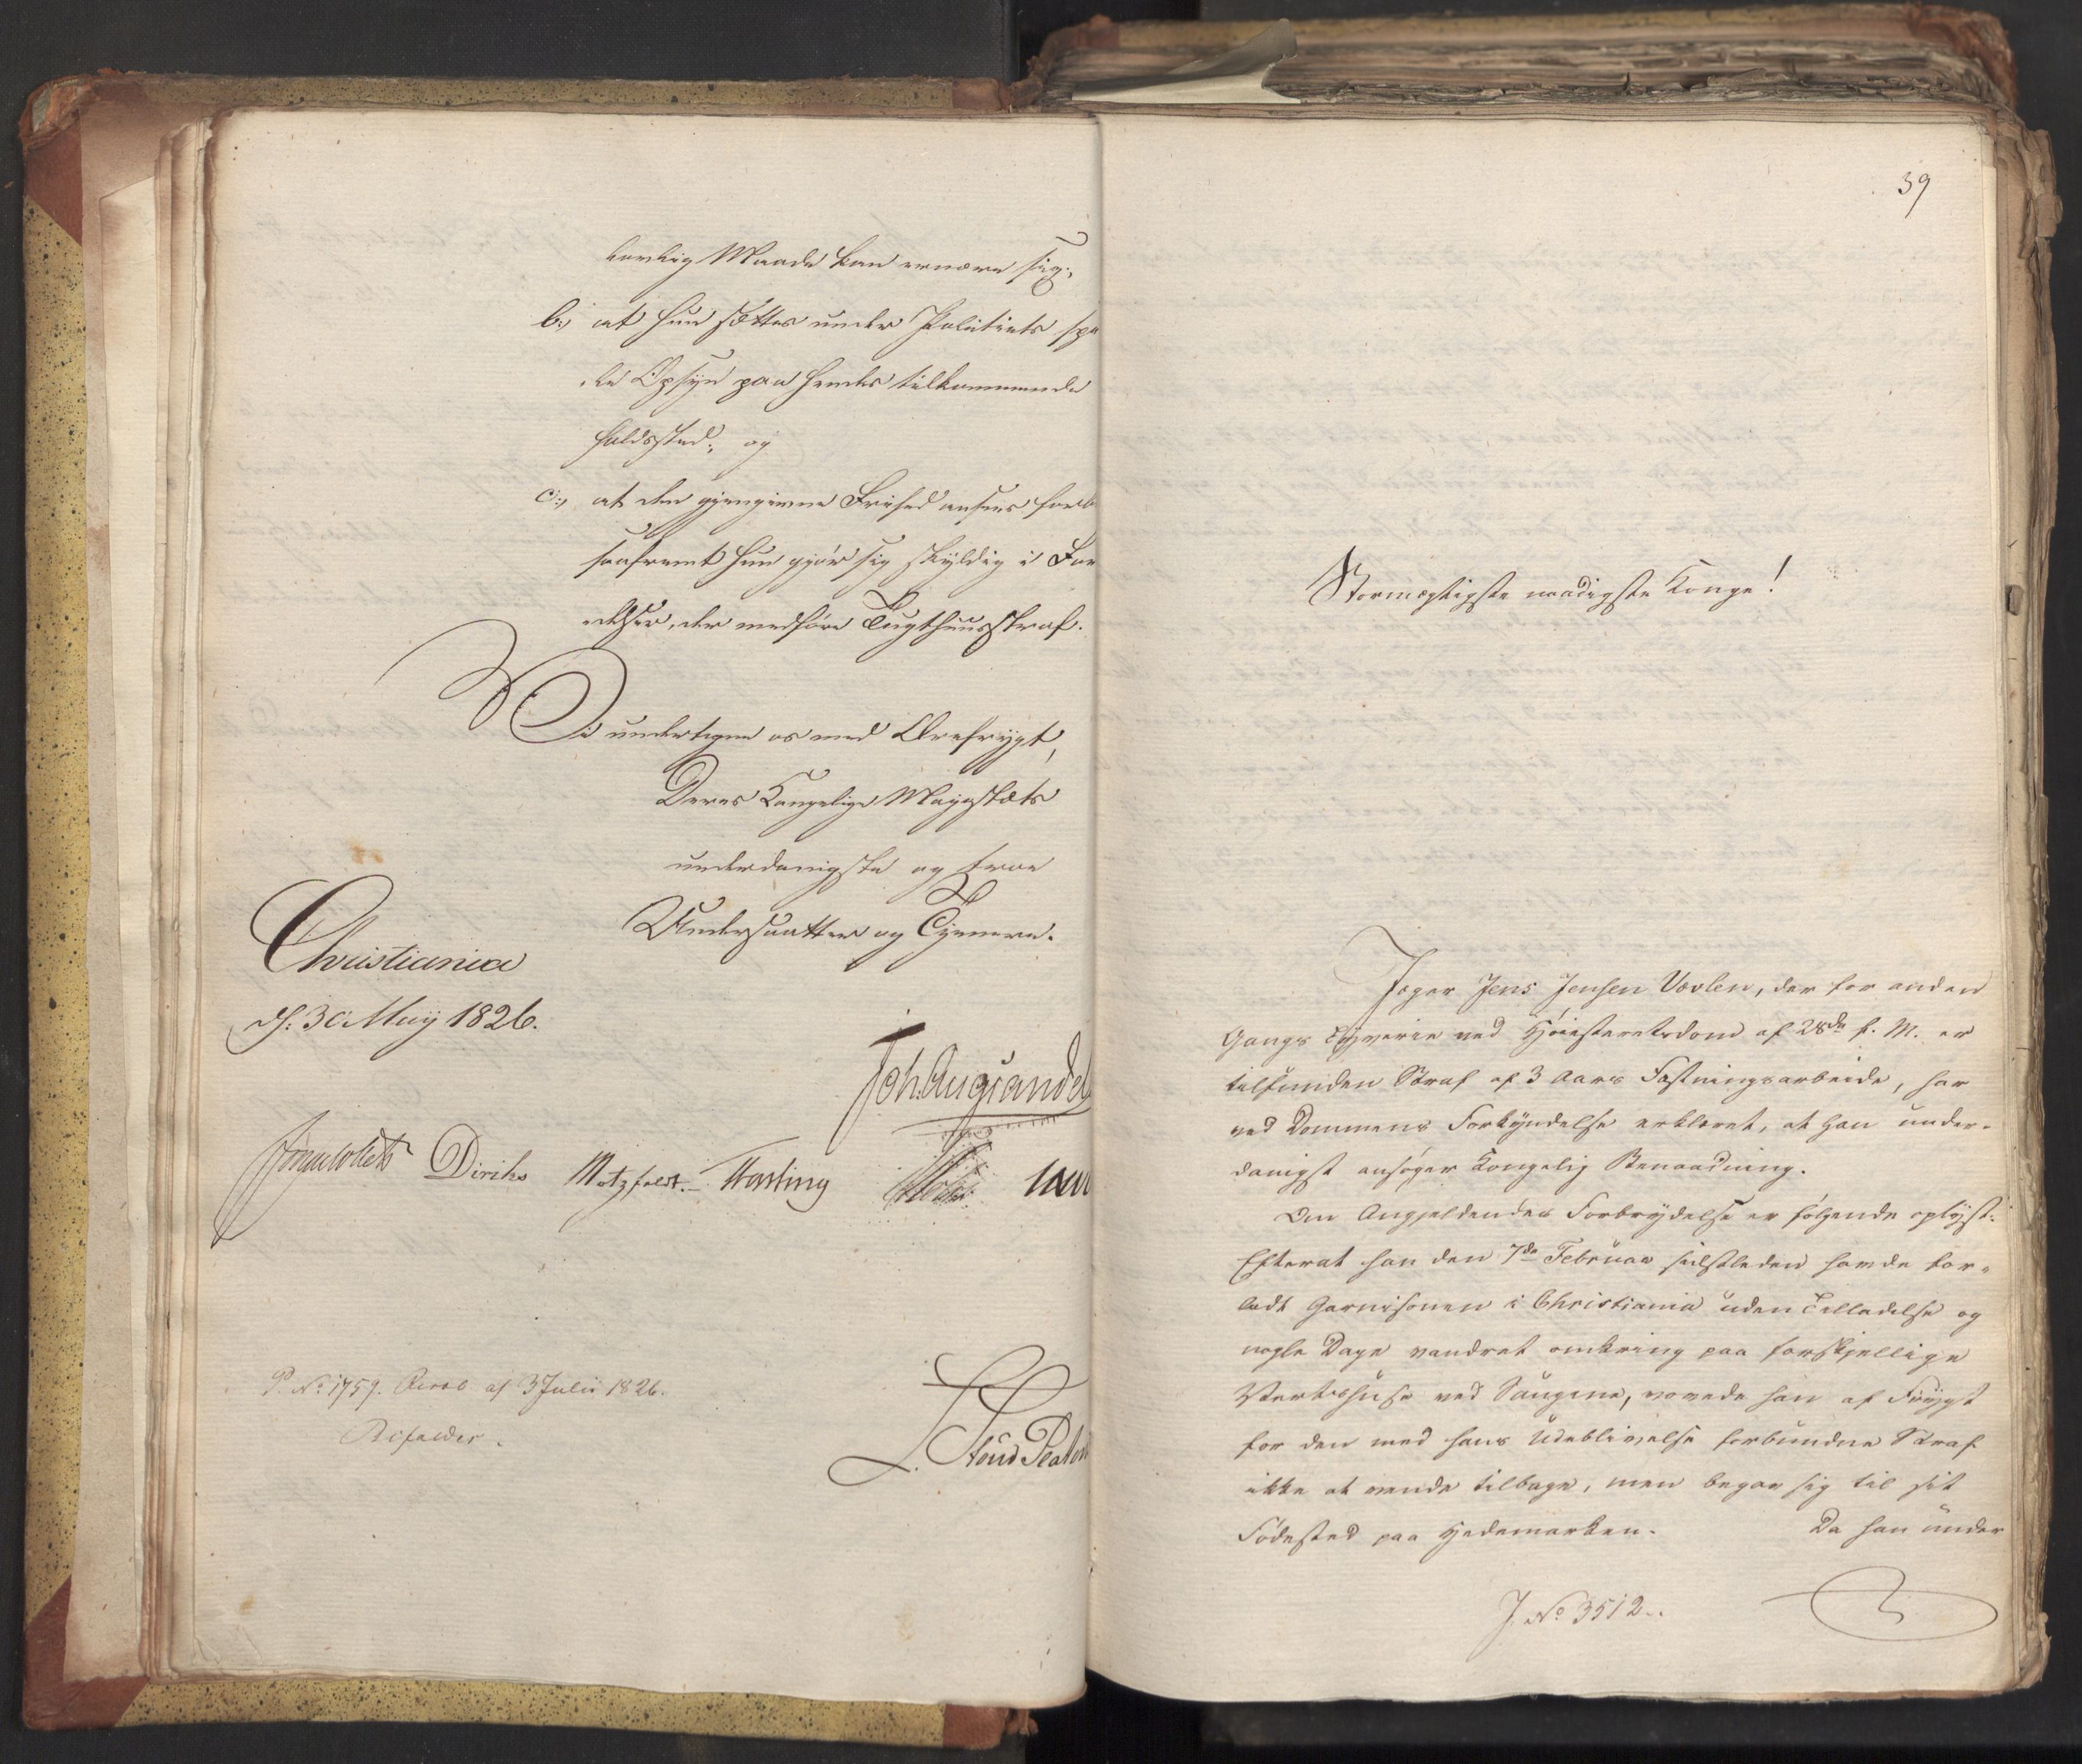 lovlig Maade kan ernære sig;
b:) at hun sættes under Politiets spe
le Opsyn paa hendes tilkommende
holdssted; og
c:) at den gjengivne Frihed ansees forb
saafremt hun gjør sig skyldig i For
delser, der medføre Tugthuusstraf.
Vi undertegne os med Ærefrygt,
Deres Kongelige Majestæts
underdanigste og troe
Undersaatter og Tjenere.
Christiania
d: 30 May 1826.
Joh. Aug. Sandel
Jonas Collett Diriks Motzfeldt. Fasting
P. No 1759. Resol. af 3 Julii 1826.
Bifaldes.
39
Stormægtigste naadigste Konge!
Jæger Jens Jensen Vevlen, der for anden
Gangs Tyverie ved Høiesteretsdom af 28de f. M. er
tilfunden Straf af 3 Aars Fæstningsarbeide, har
ved Dommens Forkyndelse erklæret, at han under-
danigst ansøger Kongelig Benaadning.
Om Angjeldendes Forbrydelse er følgende oplyst:
Efterat han den 7de Februar sidstleden havde for-
ladt Garnisonen i Christiania uden Tilladelse og
nogle Dage vandret omkring paa forskjellige
Vertshuse ved Saugene, vovede han af Frygt
for den med hans Udeblivelse forbundne Straf
ikke at vende tilbage, men begav sig til sit
Fødested paa Hedemarken. Da han under
J. No 3512.